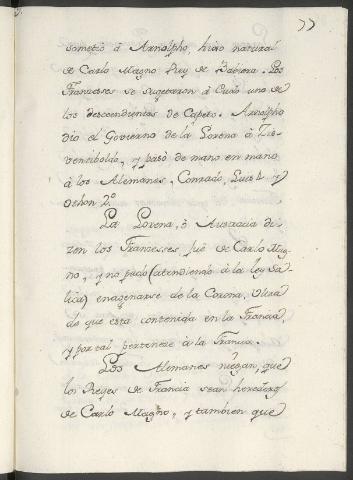 77
sometió à Arnolpho, hixo natural
de Carlo Magno Rey de Babiera. Los
Francesses se sugetaron à Eudo uno de
los descendientes de Capeto. Arnolpho
dio el Govierno de la Lorena à Zu-
ventiboldo, y pasò de mano en mano
à los Alemanes, Conrado, Luis 4 y
Othon 2.º
La Lorena, ò Austracia di-
zen los Francesses fuè de Carlo Mag-
no, y no pudo (atendiendo à la ley Sa-
lica) enagenarse de la Corona, Ultra
de que esta contenida en la Francia,
y por tal pertenece à la Francia.
Los Alemanes niegan, que
los Reyes de Francia sean herederos
de Carlo Magno, y tambien que